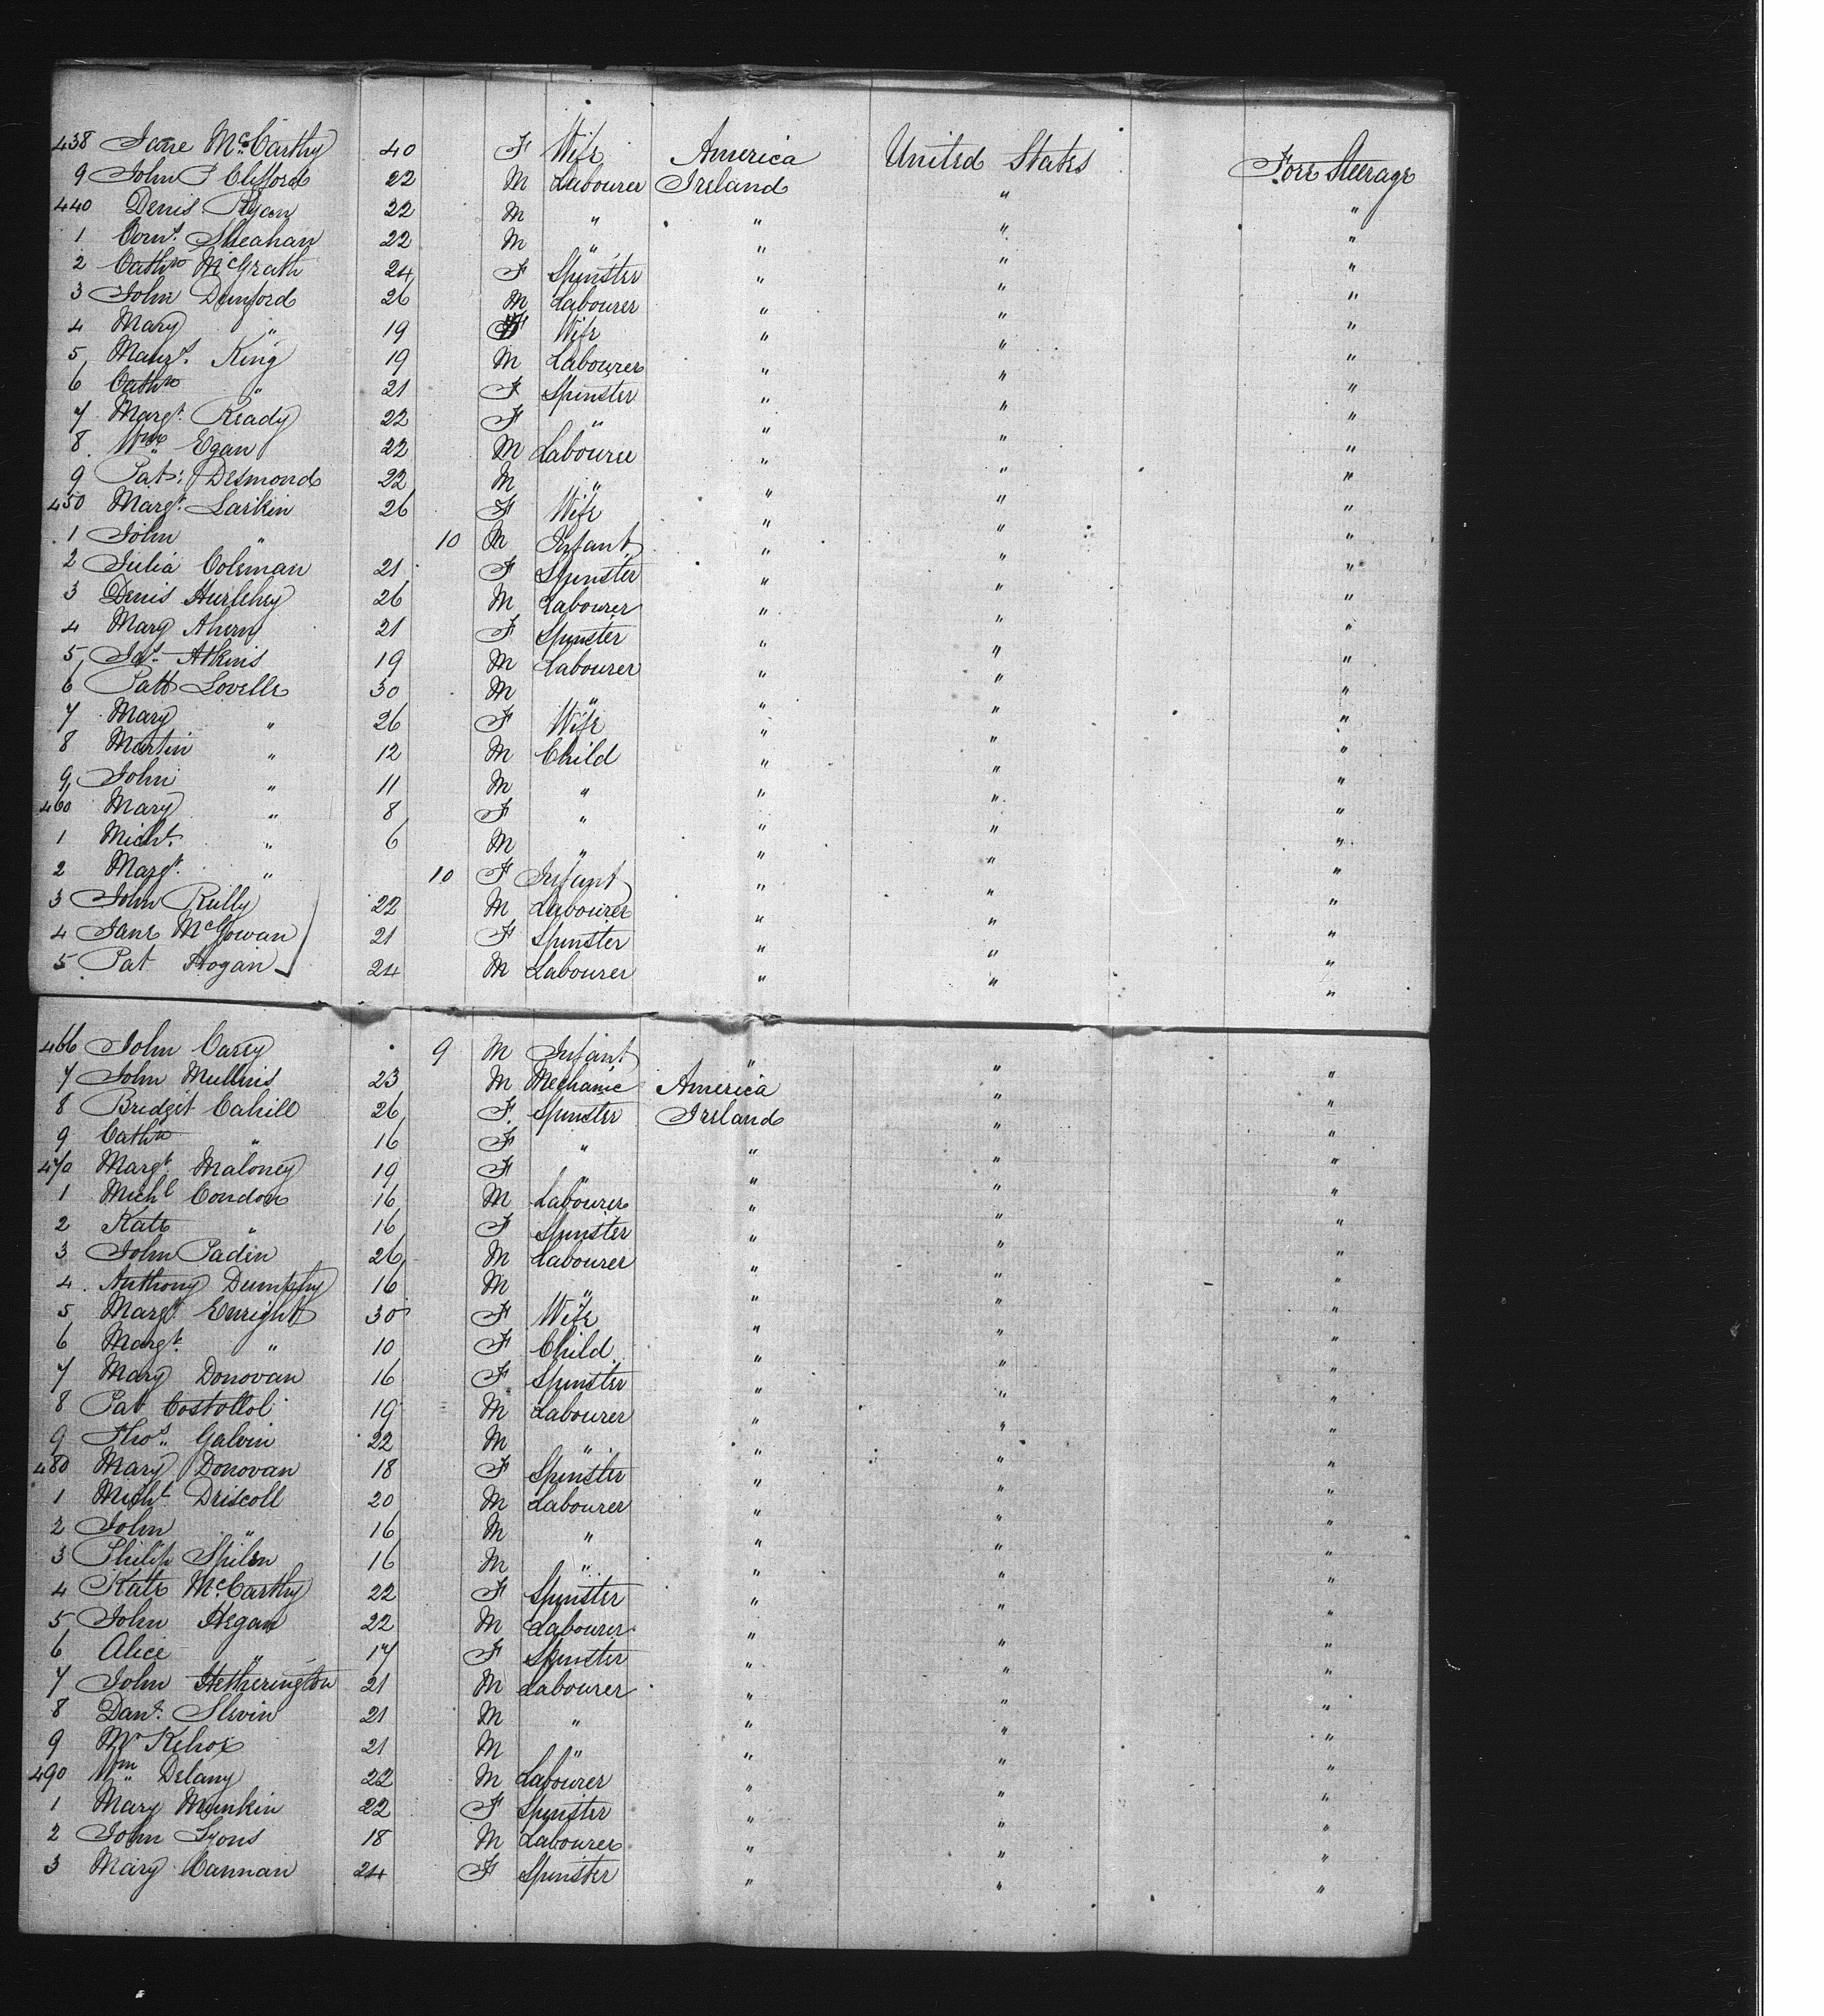 438 Jane McCarthy 40 F Wife America United States Fore Steerage
9 John Clifford 22 M Labourer Ireland " "
440 Denis Ryan 22 M " " " "
1 Corns. Sheahan 22 M " " " "
2 Cathn McGrath 24 F Spinster " " "
3 John Dunford 26 M Labourer " " "
4 Mary " 19 F Wife " " "
5 Maurs. King 19 M Labourer " " "
6 Cathn " 21 F Spinster " " "
7 Margt. Ready 22 F " " " "
8 Wm Egan 22 M Labourer " " "
9 Pat: Desmond 22 M " " " "
450 Margt. Larkin 26 F Wife " " "
1 John " 10 M Infant " " "
2 Julia Coleman 21 F Spinster " " "
3 Denis Hurlehy 26 M Labourer " " "
4 Mary Ahern 21 F Spinster " " "
5 Jas. Atkins 19 M Labourer " " "
6 Patt Lovelle 30 M " " " "
7 Mary " 26 F Wife " " "
8 Martin " 12 M Child " " "
9 John " 11 M " " " "
460 Mary " 8 F " " " "
1 Michl. " 6 M " " " "
2 Margt. " 10 F Infant " " "
3 John Reilly 22 M Labourer " " "
4 Jane McGowan 21 F Spinster " " "
5 Pat Hogan 24 M Labourer " " "
466 John Carey 9 M Infant " " "
7 John Mullins 23 M Mechanic America " "
8 Bridget Cahill 26 F Spinster Ireland " "
9 Cathn " 16 F " " " "
470 Margt. Maloney 19 F " " " "
1 Michl Condon 16 M Labourer " " "
2 Kate " 16 F Spinster " " "
3 John Padin 26 M Labourer " " "
4 Anthony Dumphy 16 M " " " "
5 Margt Enright 30 F Wife " " "
6 Margt. " 10 F Child " " "
7 Mary Donovan 16 F Spinster " " "
8 Pat 19 M Labourer " " "
9 Thos. Galvin 22 M " " " "
480 Mary Donovan 18 F Spinster " " "
1 Michl Driscoll 20 M Labourer " " "
2 John " 16 M " " " "
3 Philip 16 M " " " "
4 Kate McCarthy 22 F Spinster " " "
5 John Hegan 22 M Labourer " " "
6 Alice " 17 F Spinster " " "
7 John Hetherington 21 M Labourer " " "
8 Danl. Slevin 21 M " " " "
9 Mr Kehoe 21 M " " " "
490 Wm Delany 22 M Labourer " " "
1 Mary Munkin 22 F Spinster " " "
2 John Lyons 18 M Labourer " " "
3 Mary Cannan 24 F Spinster " " "